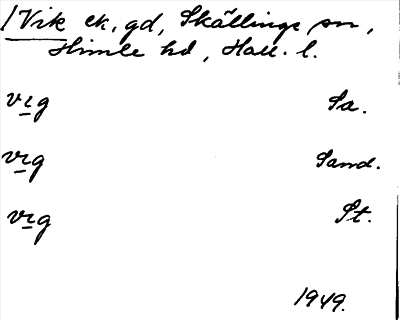 /Vik ek. gd, Skällinge sn,
Himle hd, Hall. l.
vig Sa.
vig Sand.
vig St.
1949.